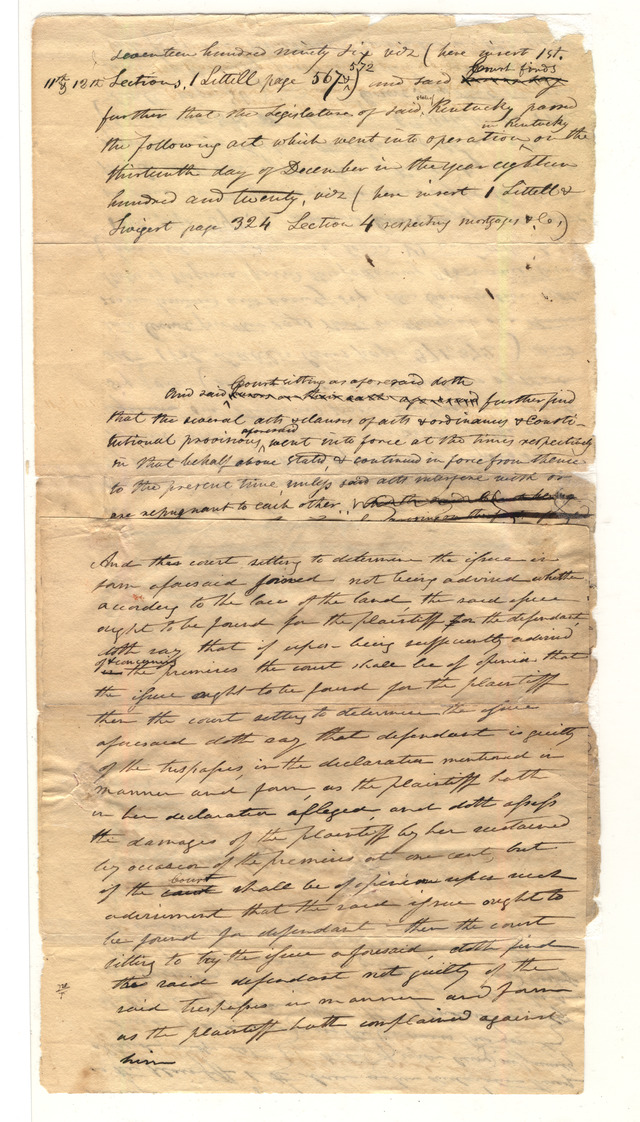 seventeen hundred ninety six viz (here insert 1st.
11th & 12th Sections, 1 Littell page 567 & 572) and said Court finds
further that the Legislature of said State of Kentucky passed
the following act which went into operation in Kentucky on the
thirteenth day of December in the year eighteen
hundred and twenty, viz (here insert 1 Littell &
Swigert page 324 Section 4 respecting mortgages &c.)
And said Court sitting as aforesaid doth further find
that the several acts & clauses of acts & ordinances & Consti-
tutional provisions aforesaid went into force at the times respectively
in that behalf above stated, & continued in force from thence
to the present time, unless said acts interfere with or
are repugnant to each other.
And this court setting to determine the issue in
form aforesaid joined not being advised whether
according to the law of the land, the said issue
ought to be found for the plaintiff or for the defendant
doth say that if upon being sufficiently advised
of & concerning the premises the court shall be of opinion that
the issue ought to be found for the plaintiff
then the court setting to determine the issue
aforesaid doth say that defendant is guilty
of the trespasses in the declaration mentioned in
manner and form as the plaintiff hath
in her declaration alleged, and doth assess
the damages of the plaintiff by her sustained
by occasion of the premises at one cent, but
if the court shall be of opinion upon such
advisement that the said issue ought to
be found for defendant then the court
sitting to try the issue aforesaid, doth find
the said defendant not guilty of the
said trespasses in manner and form
as the plaintiff hath complained against
him